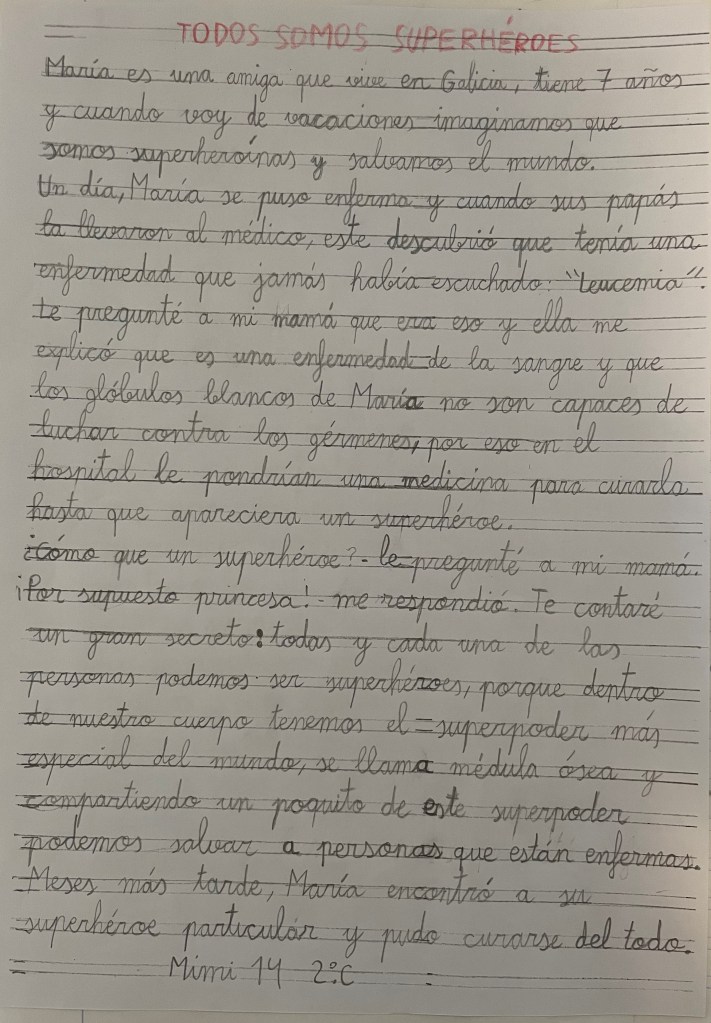 TODOS SOMOS SUPERHÉROES
María es una amiga que vive en Galicia, tiene 7 años
y cuando voy de vacaciones imaginamos que
somos superheroínas y salvamos el mundo.
Un día, María se puso enferma y cuando sus papás
la llevaron al médico, este descubrió que tenía una
enfermedad que jamás había escuchado: "Leucemia".
Le pregunté a mi mamá que era eso y ella me
explicó que es una enfermedad de la sangre y que
los glóbulos blancos de María no son capaces de
luchar contra los gérmenes, por eso en el
hospital le pondrían una medicina para curarla
hasta que apareciera un superhéroe.
¿Cómo que un superhéroe?- le pregunté a mi mamá.
¡Por supuesto princesa!- me respondió. Te contaré
un gran secreto: todas y cada una de las
personas podemos ser superhéroes, porque dentro
de nuestro cuerpo tenemos el superpoder más
especial del mundo, se llama médula ósea y
compartiendo un poquito de este superpoder
podemos salvar a personas que están enfermas.
Meses más tarde, María encontró a su
superhéroe particulár y pudo curarse del todo.
Mimi 14 2.ºC